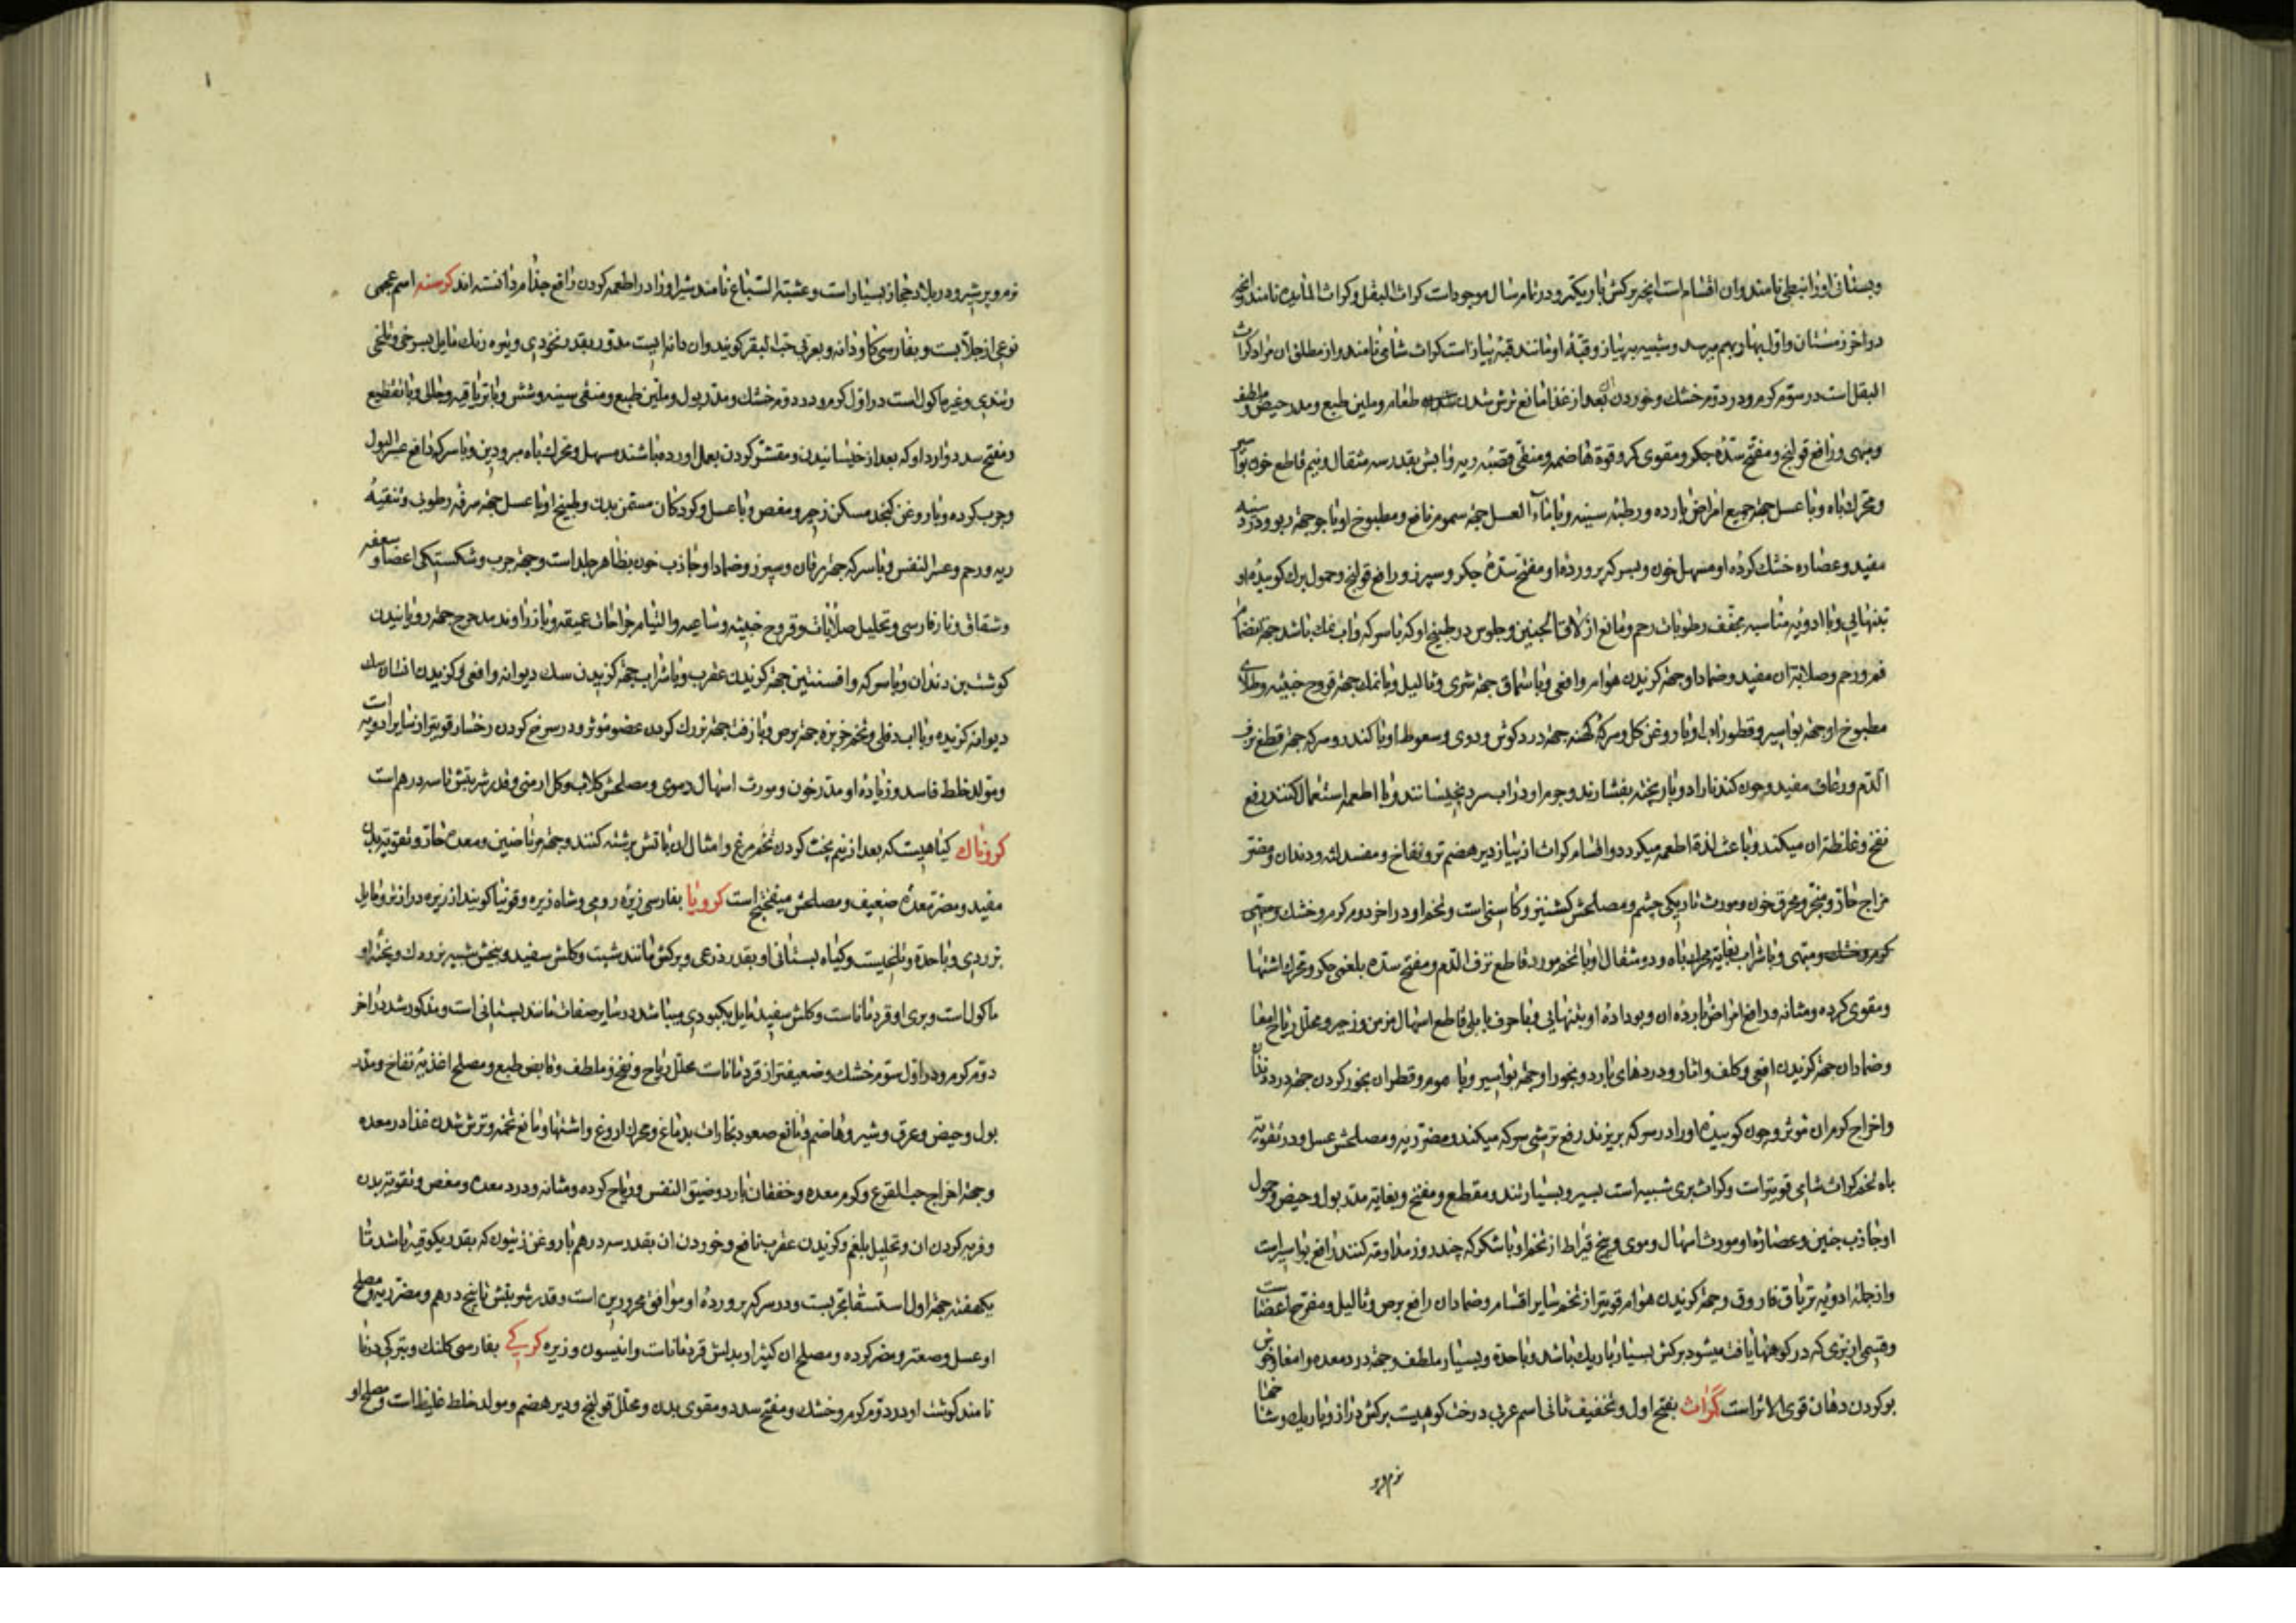 وبستانی اورا نبطی نامند وان اقسام است انچه برکش باریکتر و در تمام سال موجود است کراث البقل و کراث المائده نامند وانچه
در اخر زمستان واول بهار بهم میرسد و شبیه به پیاز و قبهٔ او مانند قبهٔ پیاز است کراث شامی نامند و از مطلق ان مراد کراث
البقل است در سوّم کرم و در دوّم خشک و خوردن ان بعد از غذا مانع ترش شدن طعام و ملین طبع و مدر حیض و ملطف
ومبهی و رافع قولنج و مفتح سدهٔ جکر و مقوی کرده و قوة هاضمه و منقی قصبهٔ ریه و ابش بقدر سه مثقال و نیم قاطع خون بواسیر
و محرک باه و با عسل جهة جمیع امراض بارده و رطبهٔ سینه و با ماء العسل جهة سموم نافع و مطبوخ او با جو جهة ربو و درد سینه
مفید و عصاره خشک کردهٔ او مسهل خون و بسرکه پروردهٔ او مفتح سدهٔ جکر و سپرز و رافع قولنج و حمول برک کوبیدهٔ او
بتنهایی و با ادویهٔ مناسبه مجفف رطوبات رحم و مانع ازلاق الجنین و جلوس در طبیخ او که با سرکه و اب نمک باشد جهة انضمام
فم رحم و صلابة ان مفید و ضماد او جهة کزیدن هوام و افعی و با سماق جهة شری و ثالیل و با نمک جهة قروح خبیثه و طلای
مطبوخ او جهة بواسیر و قطور اب او با روغن کل و سرکهٔ کهنه جهة درد کوش و دوی و سعوط او با کندر و سرکه جهة قطع نزف
الدّم و رعاف مفید و چون کندنا را دو بار پخته بفشارند و جرم او در اب سرد بخیسانند و با اطعمه استعمال کنند رفع
نفخ و غلظة ان میکند و باعث لذة اطعمه میکردد و اقسام کراث از پیاز دیر هضم تر و نفاخ و مفسد لثه و دندان و مضر
مزاج حار و مبخر و محرق خون و مورث تاریکی چشم و مصلحش کشنیز و کاسنی است و تخم او در اخر دوم کرم و خشک و مبهی
کرم و خشک و مبهی و با شراب بغایة محرک باه و دو مثقال او با تخم مورد قاطع نزف الدّم و مفتح سدهٔ بلغمی جکر و محرک اشتها
و مقوی کرده و مثانه و رافع امراض باردهٔ ان و بو دادهٔ او بتنهایی و با حرف بابلی قاطع اسهال مزمن و زحیر و محلل ریاح امعا
و ضماد ان جهة کزیدن افعی و کلف و اثار و دردهای بارد و بخور او جهة بواسیر و با موم و قطران بخور کردن جهة درد دندان
و اخراج کرم ان موثر و چون کوبیدهٔ او را در سرکه بریزند رفع ترشی سرکه میکند و مضر ریه و مصلحش عسل و در تقویة
باه تخم کراث شامی قویتر است و کراث بری شبیه است بسیر و بسیار تند و مقطع و مفتح و بغایة مدر بول و حیض و حمول
او جاذب جنین و عصارهٔ او مورث اسهال دموی و پنج قیراط از تخم او با شکر که چند روز مداومة کنند رافع بواسیر است
و از جملهٔ ادویهٔ تریاق فاروق و جهة کزیدن هوام قویتر از تخم سایر اقسام و ضماد ان رافع برص و ثالیل و مقرح اعضا است
و قسمی از بری که در کوهها یافت میشود برکش بسیار باریک باشد و با حدة و بسیار ملطف و جهة درد معده و امعا و خوش
بو کردن دهان قوی الاثر است کراث بفتح اول و تخفیف ثانی اسم عربی درخت کوهیست برکش دراز و باریک و شاخها
نرم و پر
نرم و پر شیر و در بلاد حجاز بسیار است و عشبة السباع نامند شیر او را در اطعمه کردن رافع جذام دانسته اند کرسنه اسم عجمی
نوعی از جلبا نست و بفارسی کاودانه و بعربی حب البقر کویند و ان دانه ایست مدور بقدر نخودی و تیره رنک مایل بسرخی و تلخی
و تندی و غیر ماکول است در اول کرم و در دوّم خشک و مدر بول و ملین طبع و منقی سینه و شش و با تریاقیه و جالی و با تقطیع
و مفتح سدد و ارد او که بعد از خیسانیدن و مقشر کردن بعمل اورده باشند مسهل و محرک باه مبرودین و با سرکه رافع عسر البول
و چرب کرده و با روغن کنجد مسکن زحیر و مغص و با عسل و کردکان مسمن بدن و طبیخ او با عسل جهة سرفهٔ رطوبی و تنقیهٔ
ریه و رحم و عسر النفس و با سرکه جهة یرقان و سپرز و ضماد او جاذب خون بظاهر جلد است و جهة جرب و شکستکی اعضا و سعفه
و شقاق و نار فارسی و تحلیل صلابات و قروح خبیثه و ساعیه و التیام جراحات عمیقه و با زراوند مدحرج جهة رویانیدن
کوشت بن دندان و با سرکه و افسنتین جهة کزیدن عقرب و با شراب جهة کزیدن سک دیوانه و افعی و کزیدن انسان سک
دیوانه کزیده و با اب دفلی و تخم خربزه جهة برص و با زفت جهة بزرک کردن عضو موثر و در سرخ کردن رخسار قویتر از سایر ادویه است
و مولد خلط فاسد و زیادهٔ او مدر خون و مورث اسهال دموی و مصلحش کلاب و کل ارمنی و قدر شربتش تا سه درهم است
کروناک کیاهیست که بعد از نیم پخت کردن تخم مرغ و امثال ان باتش برشته کنند و جهة مرتاضین و معدهٔ حار و تقویة بدن
مفید و مضر معدهٔ ضعیف و مصلحش میفختج است کرویا بفارسی زیرهٔ رومی و شاه زیره و قرنباد کویند از زیره دراز تر و مایل
بزردی و با حدة و تلخیست و کیاه بستانی او بقدر ذرعی و برکش مانند شبت و کلش سفید و بیخش شبیه بزردک و پختهٔ او
ماکول است و بری او قردمانا است و کلش سفید مایل بکبودی میباشد و در سایر صفات مانند بستانی است و مذکور شد در اخر
دوّم کرم و در اول سوّم خشک و ضعیفتر از قردمانا است محلل ریاح و نفخ و ملطف و قابض طبع و مصلح اغذیهٔ نفاخ و مدر
بول و حیض و عرق و شیر و هاضم و مانع صعود بخارات بدماغ و محرک اروغ و اشتها و مانع تخمه و ترش شدن غذا در معده
و جهة اخراج حب القرع و کرم معده و خفقان بارد و ضیق النفس و ریاح کرده و مثانه و درد معده و مغص و تقویة بدن
و فربه کردن ان و تحلیل بلغم و کزیدن عقرب نافع و خوردن ان بقدر سه درهم با روغن زیتون که بقدر یکوقیه باشد تا
یکهفته جهة اول استسقا مجربست و در سرکه پروردهٔ او موافق محرورین است و قدر شربتش تا پنج درهم و مضر ریه و مصلح
او عسل و صعتر و مضر کرده و مصلح ان کتیرا و بدلش قردمانا است و انیسون و زیره کرکی بفارسی کلنک و بترکی درنا
نامند کوشت او در دوّم کرم و خشک و مفتح سدد و مقوی بدن و محلل قولنج و دیر هضم و مولد خلط غلیظ است و مصلح او